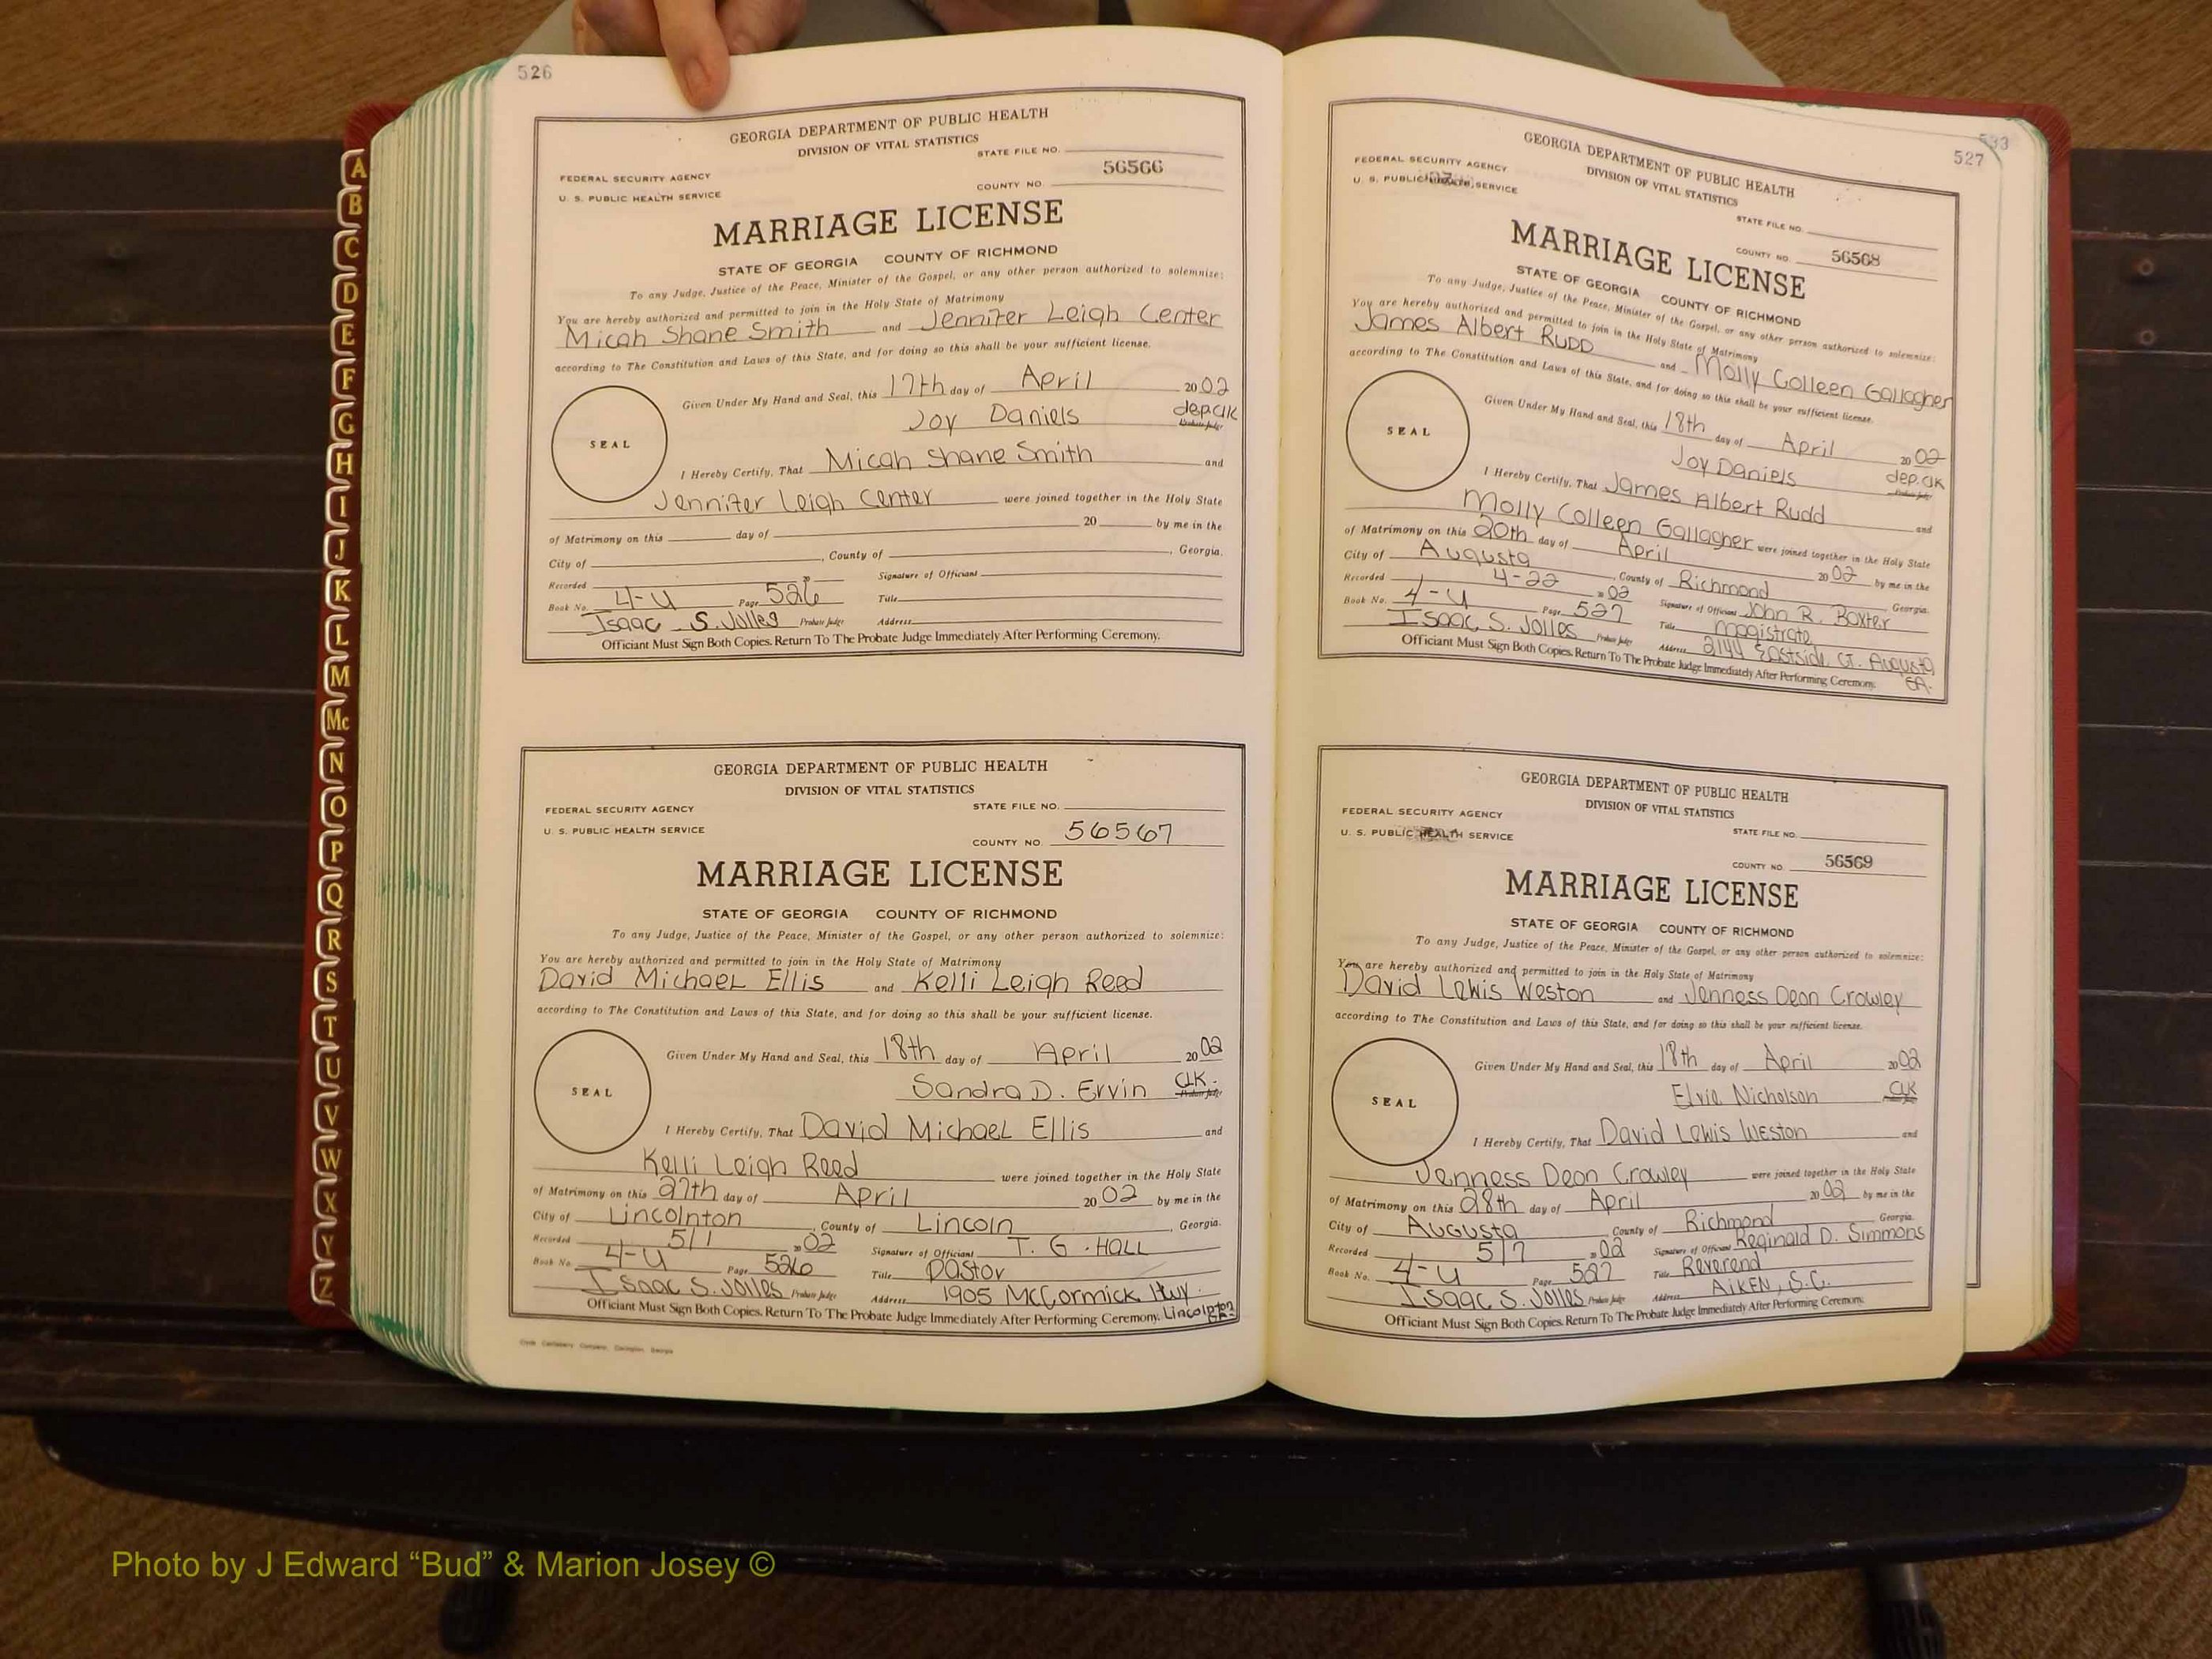 526
GEORGIA DEPARTMENT OF PUBLIC HEALTH
DIVISION OF VITAL STATISTICS
STATE FILE NO.
FEDERAL SECURITY AGENCY
56566
U. S. PUBLIC HEALTH SERVICE
COUNTY NO.
MARRIAGE LICENSE
STATE OF GEORGIA COUNTY OF RICHMOND
To any Judge, Justice of the Peace, Minister of the Gospel, or any other person authorized to solemnize:
You are hereby authorized and permitted to join in the Holy State of Matrimony
Micah Shane Smith and Jennifer Leigh Center
according to The Constitution and Laws of this State, and for doing so this shall be your sufficient license.
Given Under My Hand and Seal, this 17th day of April 2002
Joy Daniels dep.clk
Probate Judge
SEAL
I Hereby Certify, That Micah Shane Smith and
Jennifer Leigh Center were joined together in the Holy State
of Matrimony on this day of 20 by me in the
City of , County of , Georgia.
Recorded 20 Signature of Official
Book No. 4-U Page 526 Title
Isaac S. Jolles Probate Judge Address
Officiant Must Sign Both Copies. Return To The Probate Judge Immediately After Performing Ceremony.
GEORGIA DEPARTMENT OF PUBLIC HEALTH
DIVISION OF VITAL STATISTICS
FEDERAL SECURITY AGENCY STATE FILE NO.
U. S. PUBLIC HEALTH SERVICE 56567
COUNTY NO.
MARRIAGE LICENSE
STATE OF GEORGIA COUNTY OF RICHMOND
To any Judge, Justice of the Peace, Minister of the Gospel, or any other person authorized to solemnize:
You are hereby authorized and permitted to join in the Holy State of Matrimony
David Michael Ellis and Kelli Leigh Reed
according to The Constitution and Laws of this State, and for doing so this shall be your sufficient license.
Given Under My Hand and Seal, this 18th day of April 2002
Sandra D. Ervin CLK.
Probate Judge
SEAL
I Hereby Certify, That David Michael Ellis and
Kelli Leigh Reed were joined together in the Holy State
of Matrimony on this 27th day of April 20 02 by me in the
City of Lincolnton, County of Lincoln, Georgia.
Recorded 5/1 20 02 Signature of Official T. G. HALL
Book No. 4-U Page 526 Title Pastor
Isaac S. Jolles Probate Judge Address 1905 McCormick Hwy.
Officiant Must Sign Both Copies. Return To The Probate Judge Immediately After Performing Ceremony. Lincolnton
GA.
533
527
GEORGIA DEPARTMENT OF PUBLIC HEALTH
DIVISION OF VITAL STATISTICS
FEDERAL SECURITY AGENCY
U. S. PUBLIC HEALTH SERVICE
STATE FILE NO.
COUNTY NO. 56568
MARRIAGE LICENSE
STATE OF GEORGIA COUNTY OF RICHMOND
To any Judge, Justice of the Peace, Minister of the Gospel, or any other person authorized to solemnize:
You are hereby authorized and permitted to join in the Holy State of Matrimony
James Albert Rudd and Molly Colleen Gallagher
according to The Constitution and Laws of this State, and for doing so this shall be your sufficient license.
Given Under My Hand and Seal, this 18th day of April 2002
Joy Daniels dep.clk
Probate Judge
SEAL
I Hereby Certify, That James Albert Rudd and
Molly Colleen Gallagher were joined together in the Holy State
of Matrimony on this 20th day of April 20 02 by me in the
City of Augusta, County of Richmond Georgia.
Recorded 4-22 20 02 Signature of Official John R. Baxter
Book No. 4-U Page 527 Title magistrate
Isaac S. Jolles Probate Judge Address 2144 Eastside Ct. Augusta
GA.
Officiant Must Sign Both Copies. Return To The Probate Judge Immediately After Performing Ceremony.
GEORGIA DEPARTMENT OF PUBLIC HEALTH
DIVISION OF VITAL STATISTICS
FEDERAL SECURITY AGENCY
U. S. PUBLIC HEALTH SERVICE STATE FILE NO.
COUNTY NO. 56569
MARRIAGE LICENSE
STATE OF GEORGIA COUNTY OF RICHMOND
To any Judge, Justice of the Peace, Minister of the Gospel, or any other person authorized to solemnize:
You are hereby authorized and permitted to join in the Holy State of Matrimony
David Lewis Weston and Jenness Deon Crowley
according to The Constitution and Laws of this State, and for doing so this shall be your sufficient license.
Given Under My Hand and Seal, this 18th day of April 2002
Elvie Nicholson CLK
SEAL
I Hereby Certify, That David Lewis Weston and
Jenness Deon Crowley were joined together in the Holy State
of Matrimony on this 28th day of April 20 02 by me in the
City of Augusta County of Richmond Georgia.
Recorded 5/7 20 02 Signature of Official Reginald D. Simmons
Book No. 4-U Page 527 Title Reverend
Isaac S. Jolles Probate Judge Address AIKEN, S.C.
Officiant Must Sign Both Copies. Return To The Probate Judge Immediately After Performing Ceremony.
A
B
C
D
E
F
G
H
I
J
K
L
M
Mc
N
O
P
Q
R
S
T
U
V
W
X
Y
Z
Photo by J Edward “Bud” & Marion Josey ©